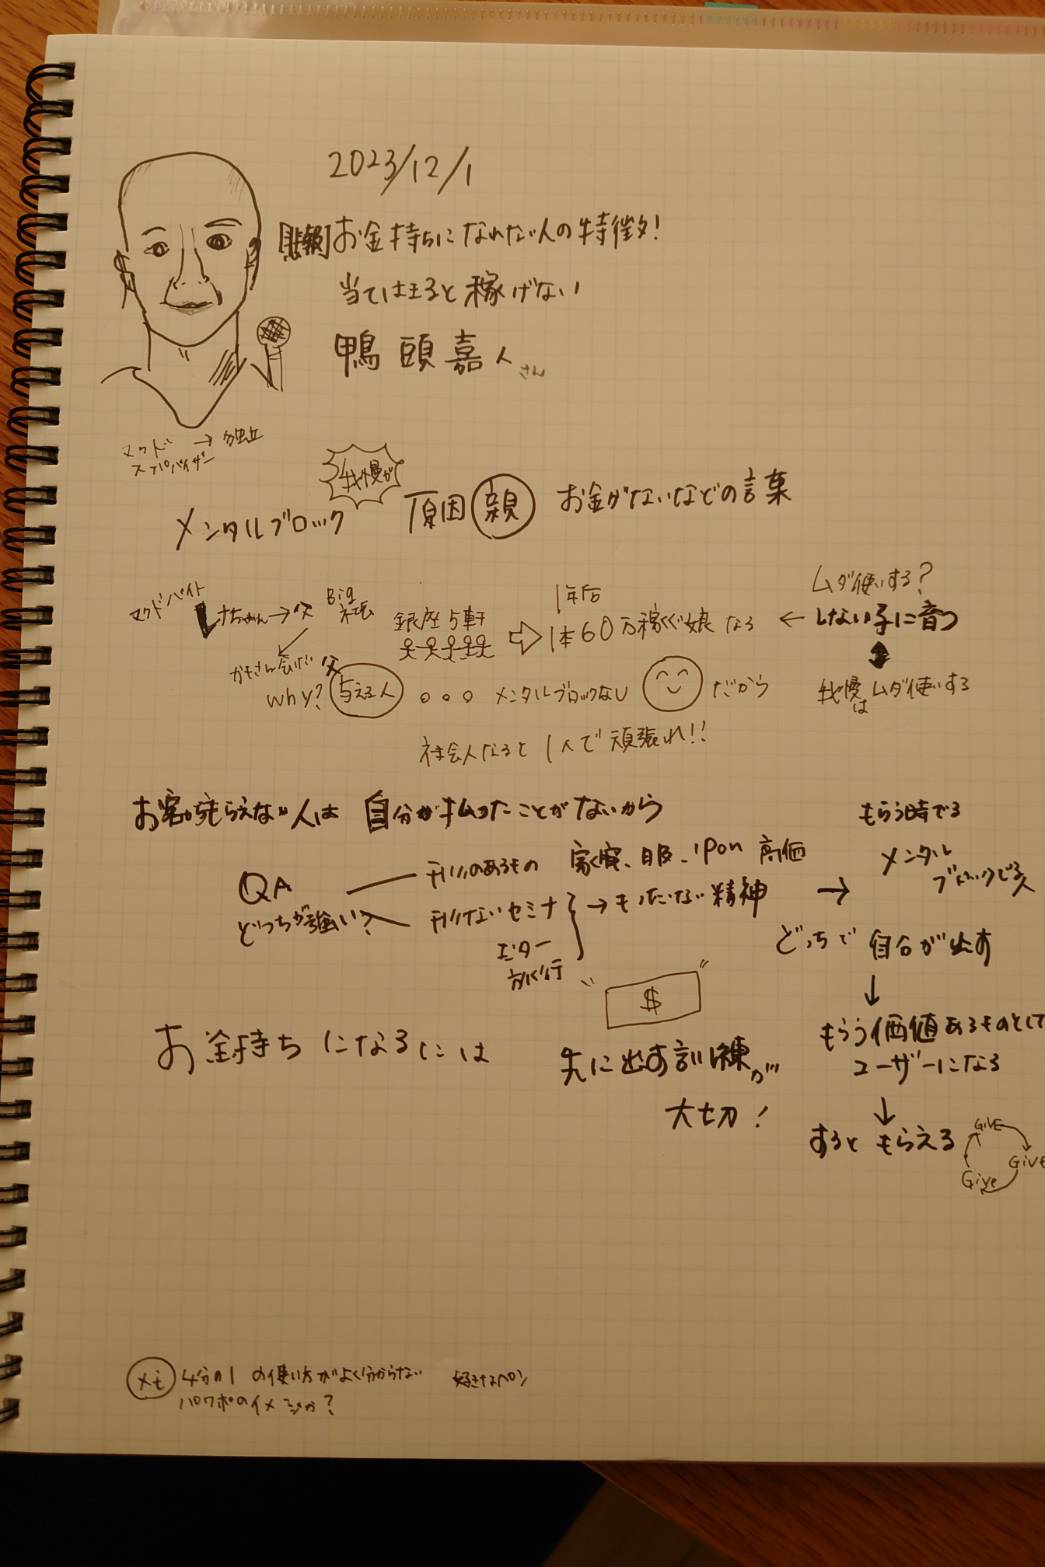 2023/12/1
[悲報]お金持ちになれない人の特徴!
当てはまると稼げない
鴨頭嘉人さん
マクド → 独立
スーパーバイザー
我慢が
メンタルブロック 原因 親 お金がないなどの言葉
マクドバイト
ちゃん→父 Big
かもさん会いたい 父
Why? 与える人
銀座5軒
1年后
1本60万稼ぐ娘なる
ムダ使いする?
← しない子に育つ
我慢はムダ使いする
メンタルブロックなし だから
社会人なると1人で頑張れ!!
お客が もらえない人は 自分が払ったことがないから
QA
どっちが強い?
形のあるもの 家賃、服、iPon 高価
形ないセミナ
旅行
→もったいない精神
→
もらう時でる
メンタル
ブロックでる
どっちで自分が出す
↓
もらう価値あるものとして
ユーザーになる
↓
すると もらえる
GIVE
GIVE
Give
$
お金持ちになるには
先に出す訓練が
大切!
メモ 4分の1 の使い方がよく分からない 好きなペン
パワポのイメージか?